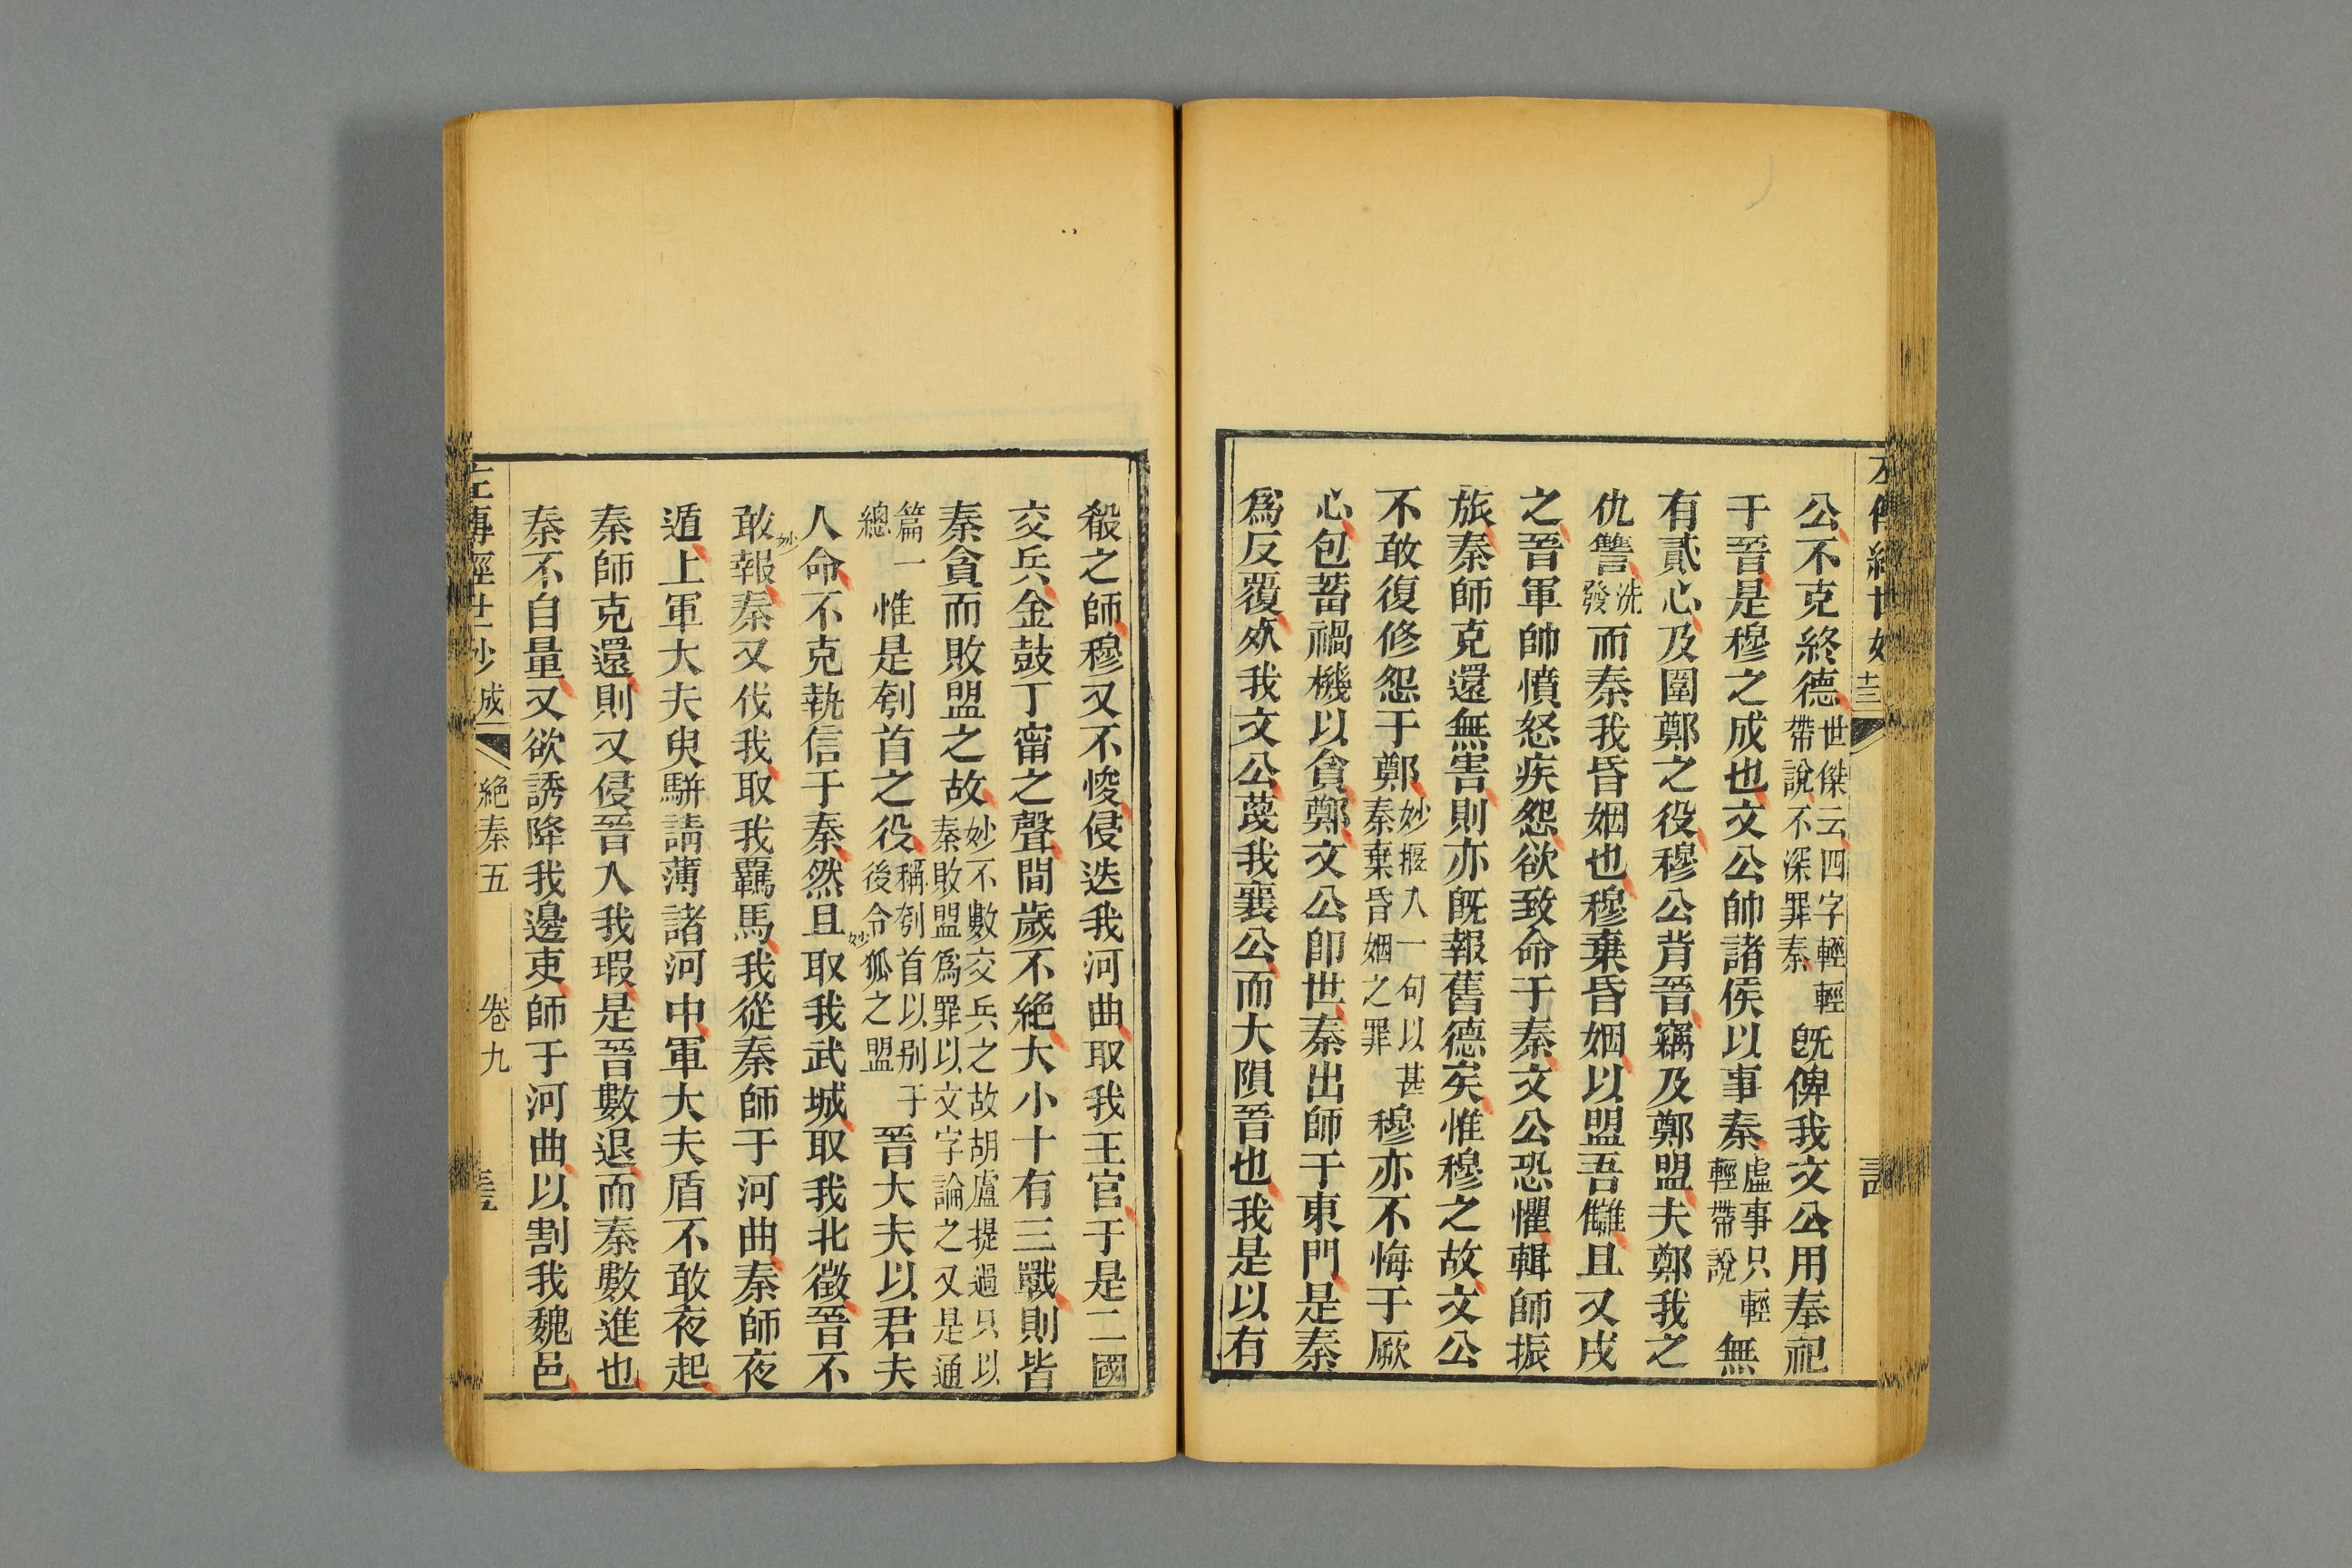 公不克終德世傑云四字輕輕帶說不深罪秦旣俾我文公用奉祀
于晉是穆之成也文公帥諸侯以事秦虛事只輕輕帶說無
有貳心及圍鄭之役穆公背晉竊及鄭盟夫鄭我之
仇讐洗發而秦我昏姻也穆棄昏姻以盟吾讎且又戍
之晉軍帥憤怒疾怨欲致命于秦文公恐懼輯師振
旅秦師克還無害則亦旣報舊德矣惟穆之故文公
不敢復修怨于鄭妙握入一句以甚秦棄昏姻之罪穆亦不悔于厥
心包蓄禍機以貪鄭文公卽世秦出師于東門是秦
爲反覆外我文公蔑我襄公而大隕晉也我是以有
殽之師穆又不悛侵迭我河曲取我王官于是二國
交兵金鼓丁甯之聲間歲不絶大小十有三戰則皆
秦貪而敗盟之故妙不數交兵之故胡盧提過只以秦敗盟爲罪以文字論之又是通
篇一總惟是刳首之役稱刳首以别于後令狐之盟晉大夫以君夫
人命不克執信于秦然且妙取我武城取我北徵晉不
敢妙報秦又伐我取我羈馬我從秦師于河曲秦師夜
遁上軍大夫臾駢請薄諸河中軍大夫盾不敢夜起
秦師克還則又侵晉入我瑕是晉數退而秦數進也
秦不自量又欲誘降我邊吏師于河曲以割我魏邑
左傳經世鈔 成 絶秦五 卷九